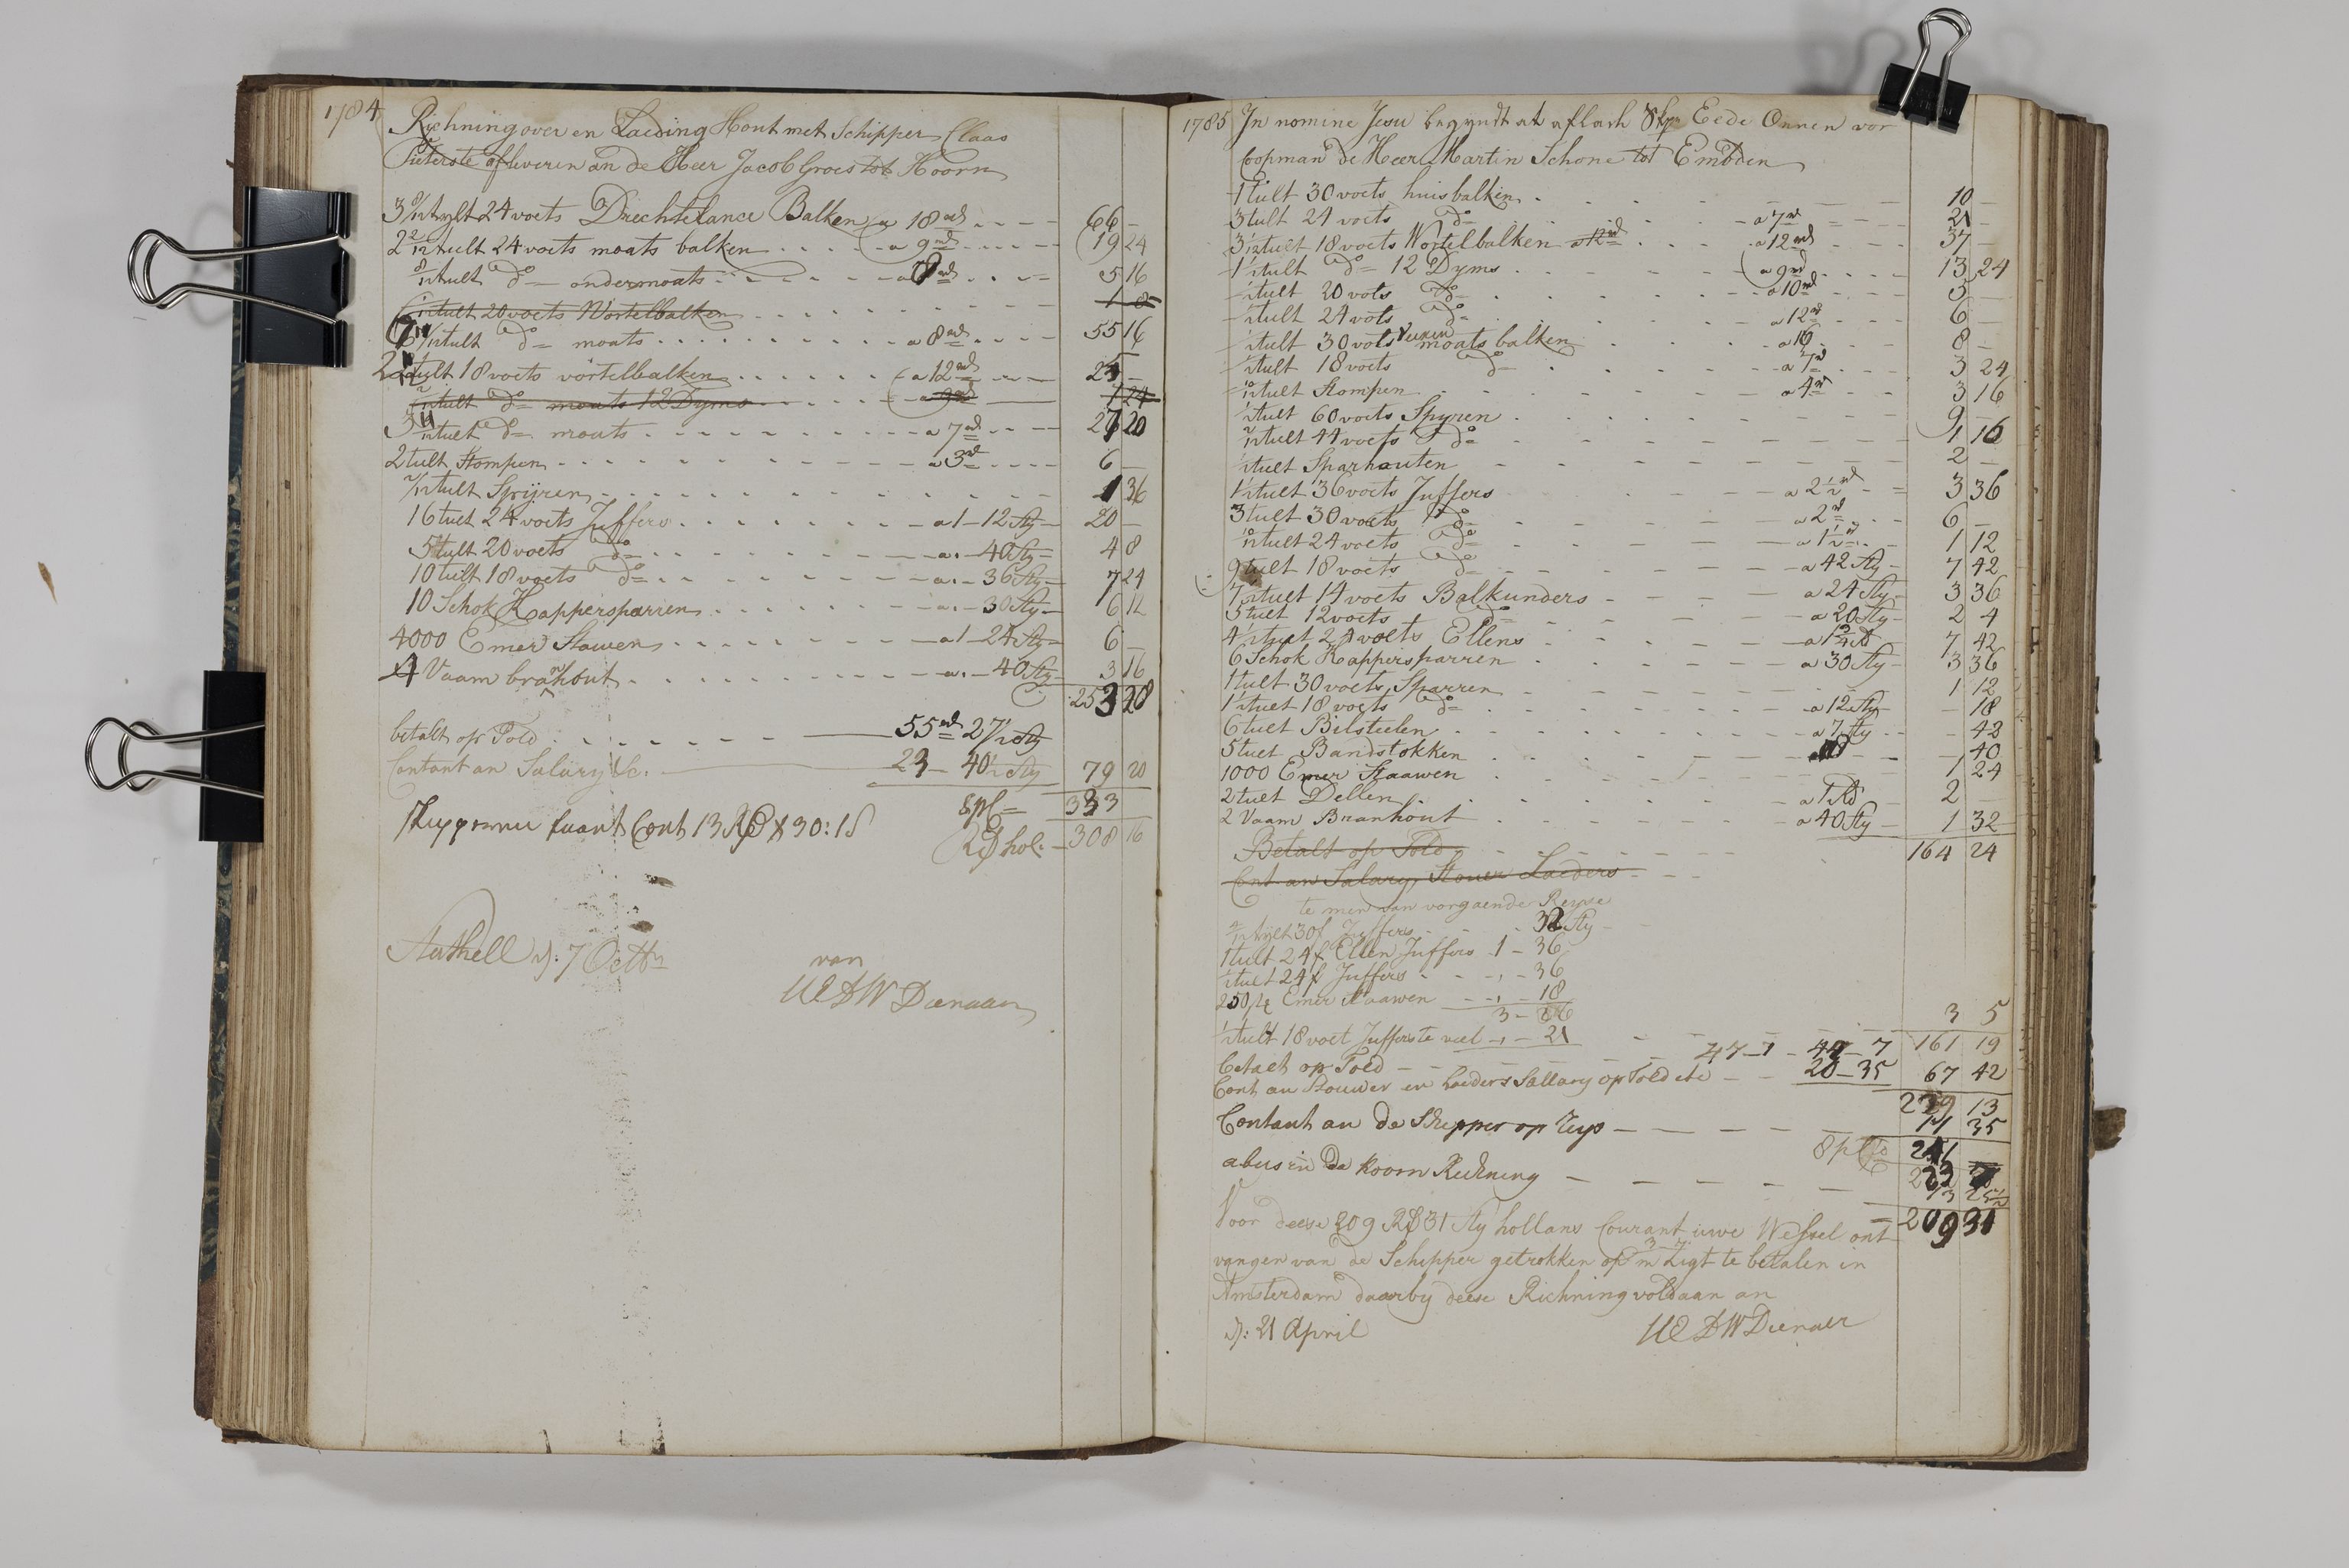 1784
Richning over en Laeding Hout met Schipper Claas
Pieterste afleveren an de Heer Jacob Groes tot Hoorn
24 voets Drechtelance Balken a 18 rd 66 -
2 2/12 tult 24 voets moats balken a 9 rd 19 24
8/12 tult do ondermoats 5 16
tult 20 voets Wortelbalken 1 8
tult do moats a 8 rd 55 16
tult 18 voets vortelbalken a 12 rd
tult do moats 12 Dyms 1 24
tult do moats a 7 rd 20
2 tult Stompen a 3 rd 6 -
2/12 tult Spijren 1 36
16 tult 24 voets Juffers a 1-12 Sty 20 -
5 tult 20 voets do a - 40 Sty 4 8
10 tult 18 voets do a - 36 Sty 7 24
10 Schok Kappersparren a - 30 Sty 6 12
4000 Emer Stawen a 1-24 Sty 6 -
4 Vaam branhout a - 40 Sty 3 16
253 28
betalt op Told 55 rd 27 1/2 Sty
Contant an Salary &c. 23 - 40 1/2 Sty 79 20
8 pC 333
Cont 13 30:1
hol: 308 16
7 Octb
van
UEDW Dienaar
1785 In nomine Jesu begyndt at aflash Skpr Eede Onnen vor
Coopman de Heer Martin Schone tot Embden
1 tult 30 voets huisbalken 10 -
3 tult 21 voets do a 7 rd 21
3 1/12 tult 18 voets Wortelbalken a 12 rd a 12 rd 37 -
1 1/2 tult do 12 Dyms a 9 rd 13 24
1/2 tult 20 vots do a 10 rd 5 -
1/2 tult 24 vots do a 12 rd 6 -
1/2 tult 30 vots moats balken a 16 8 -
1/2 tult 18 voets do a 7 rd 3 24
10/12 tult Stompen a 4 rd 3 16
1/2 tult 60 voets Spyren 9 -
2/12 tult 44 voets do 1 16
1/2 tult Sparhauten 2 -
1 1/2 tult 36 voets Juffers a 2 1/2 rd 3 36
3 tult 30 voets do a 2 rd 6 -
10/12 tult 24 voets do a 1 1/2 rd 1 12
9 tult 18 voets do a 42 Sty 7 42
7 1/2 tult 14 voets Balkunders a 24 Sty 3 36
5 tult 12 voets do a 20 Sty 2 4
4 1/2 tult 24 voets Ellens a 1 3/4 rd 7 42
6 Schok Kappersparren a 30 Sty 3 36
1 tult 30 voets Sparren 1 12
1 1/2 tult 18 voets do a 12 Sty - 18
6 tult Bilsteelen a 7 Sty - 42
5 tult Bandstokken 40
1000 Emer Staawen 1 24
2 tult Dellen a 1 Rd 2 -
2 Vaam Branhout a 40 Sty 1 32
164 24
Betalt op Told
Cont an Salary, Stouer Laeders
te men van vorgaende Reyse
tylt 30 f Juffers 32 Sty
1 tult 24 f Ellen Juffers 1 - 36
1/2 tult 24 f Juffers - 36
250 Emer Staawen - 18
3 -
1/2 tult 18 voet Juffers te veel - 21 3 5
47-7 161 19
betalt op Told
Cont an Stouwer en Laeders Sallary op Told etc 20-35 67 42
13
Contant an de Skepper op reys 35
8 pC
abus in de Koorn Rickning
209 31
Voor deese 209 Rd 31 Sty hollans Courant uwe Wessel ont
vangen van de Schipper getrokken op Zigt te betalen in
Amsterdam daarby deese Richning voldaan an
d: 21 April UEDW Dienaer